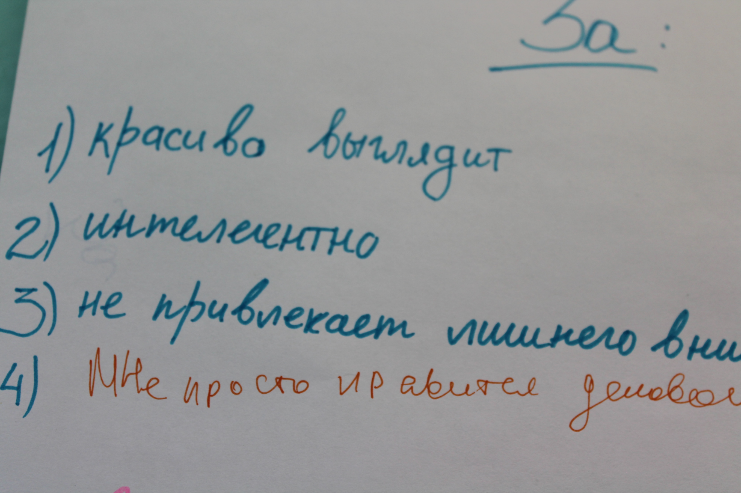 За:
1) красиво выглядит
2) интелегентно
3) не привлекает лишнего вни
4) Мне просто нравится делово